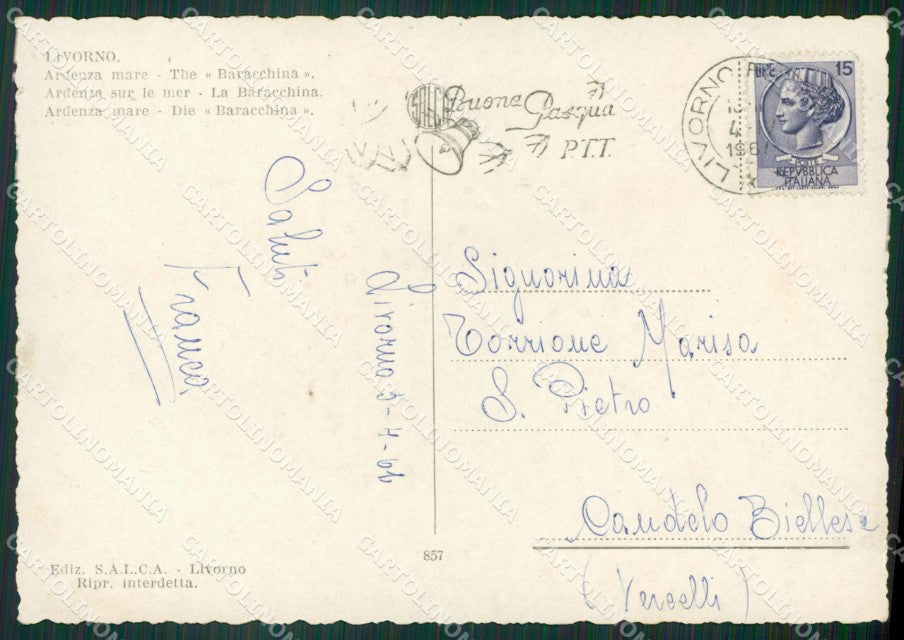 LIVORNO.
Ardenza mare - The « Baracchina ».
Ardenza sur le mer - La Baracchina.
Ardenza mare - Die « Baracchina ».
SALCA
Buona Pasqua
P.T.T.
LIVORNO
4
LIRE 15
POSTE
REPVBBLICA
ITALIANA
Saluti
Franca
Livorno 5-4-62
Signorina
Torrione Marisa
S. Pietro
Candelo Biellese
(Vercelli)
857
Ediz. S.A.L.C.A. - Livorno
Ripr. interdetta.
CARTOLINOMANIA